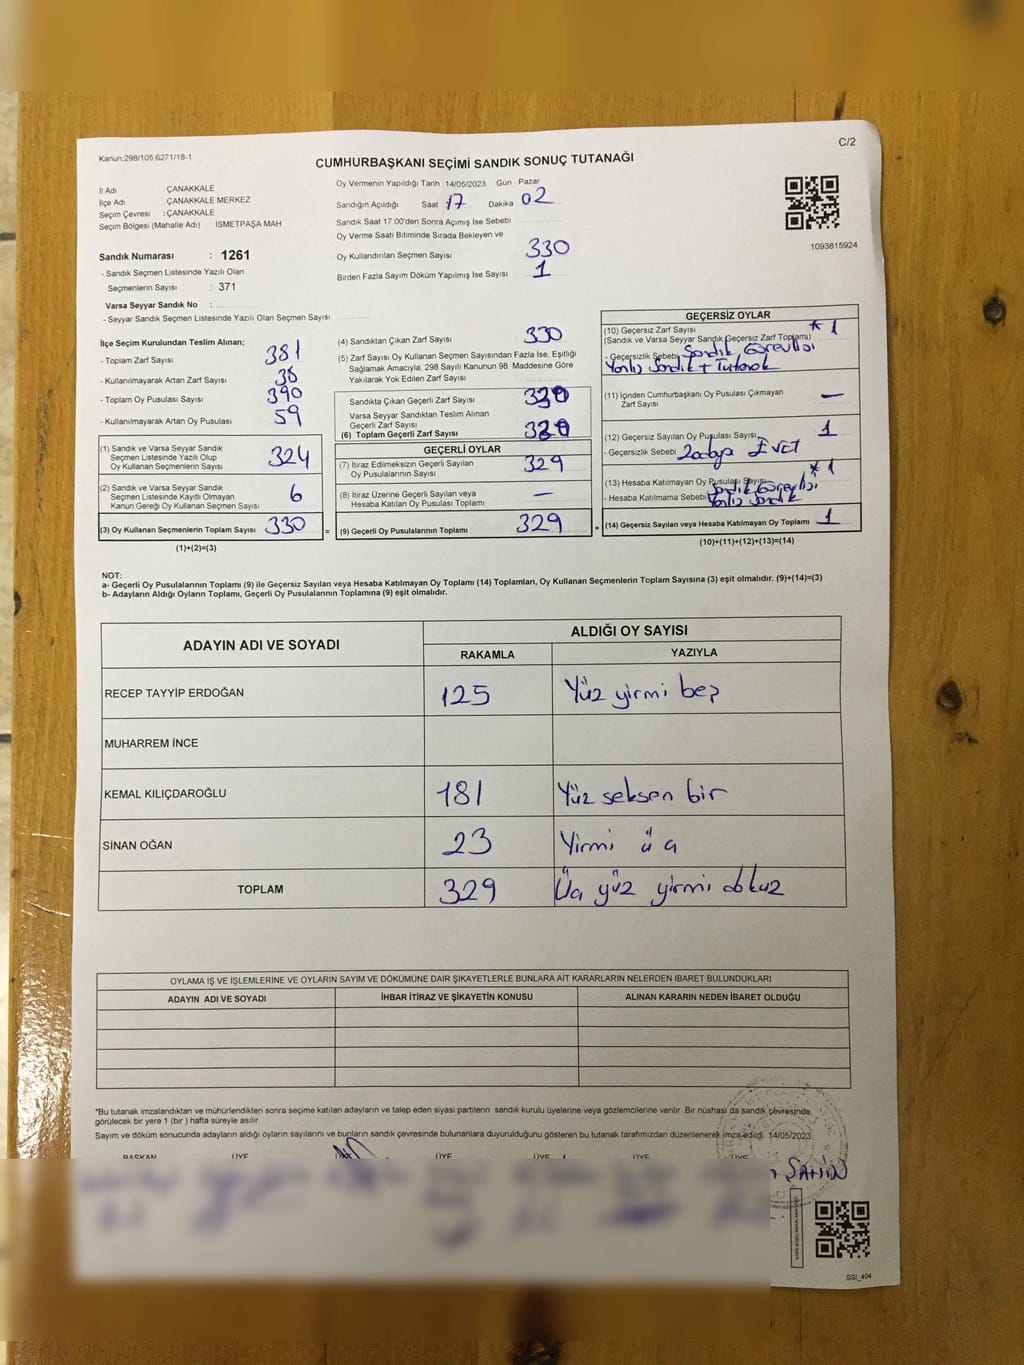 Kanun:298/105;6271/18-1
C/2
CUMHURBAŞKANI SEÇİMİ SANDIK SONUÇ TUTANAĞI
İl Adı ÇANAKKALE
İlçe Adı ÇANAKKALE MERKEZ
Seçim Çevresi : ÇANAKKALE
Seçim Bölgesi (Mahalle Adı) İSMETPAŞA MAH
Sandık Numarası : 1261
- Sandık Seçmen Listesinde Yazılı Olan
Seçmenlerin Sayısı : 371
Varsa Seyyar Sandık No :
- Seyyar Sandık Seçmen Listesinde Yazılı Olan Seçmen Sayısı
Oy Vermenin Yapıldığı Tarih : 14/05/2023 Gün : Pazar
Sandığın Açıldığı Saat 17 Dakika 02
Sandık Saat 17:00'den Sonra Açımış İse Sebebi
Oy Verme Saati Bitiminde Sırada Bekleyen ve
Oy Kullandırılan Seçmen Sayısı : 330
Birden Fazla Sayım Döküm Yapılmış İse Sayısı : 1
1093815924
İlçe Seçim Kurulundan Teslim Alınan;
- Toplam Zarf Sayısı 381
- Kullanılmayarak Artan Zarf Sayısı
- Toplam Oy Pusulası Sayısı 390
- Kullanılmayarak Artan Oy Pusulası 59
(1) Sandık ve Varsa Seyyar Sandık
Seçmen Listesinde Yazılı Olup
Oy Kullanan Seçmenlerin Sayısı 324
(2) Sandık ve Varsa Seyyar Sandık
Seçmen Listesinde Kayıtlı Olmayan
Kanun Gereği Oy Kullanan Seçmen Sayısı 6
(3) Oy Kullanan Seçmenlerin Toplam Sayısı 330
(1)+(2)=(3)
(4) Sandıktan Çıkan Zarf Sayısı 330
(5) Zarf Sayısı Oy Kullanan Seçmen Sayısından Fazla İse, Eşitliği
Sağlamak Amacıyla, 298 Sayılı Kanunun 98. Maddesine Göre
Yakılarak Yok Edilen Zarf Sayısı
Sandıkta Çıkan Geçerli Zarf Sayısı
Varsa Seyyar Sandıktan Teslim Alınan
Geçerli Zarf Sayısı
(6) Toplam Geçerli Zarf Sayısı
GEÇERLİ OYLAR
(7) İtiraz Edilmeksizin Geçerli Sayılan
Oy Pusulalarının Sayısı 329
(8) İtiraz Üzerine Geçerli Sayılan veya
Hesaba Katılan Oy Pusulası Toplamı —
(9) Geçerli Oy Pusulalarının Toplamı 329
=
+
GEÇERSİZ OYLAR
(10) Geçersiz Zarf Sayısı * 1
(Sandık ve Varsa Seyyar Sandık Geçersiz Zarf Toplamı)
- Geçersizlik Sebebi Sandık Görevlisi
Yanlış Sandık + Tutanak
(11) İçinden Cumhurbaşkanı Oy Pusulası Çıkmayan
Zarf Sayısı —
(12) Geçersiz Sayılan Oy Pusulası Sayısı 1
- Geçersizlik Sebebi 2 adaya EVET
(13) Hesaba Katılmayan Oy Pusulası Sayısı * 1
Sandık Görevlisi
- Hesaba Katılmama Sebebi Yanlış Sandık
(14) Geçersiz Sayılan veya Hesaba Katılmayan Oy Toplamı 1
(10)+(11)+(12)+(13)=(14)
NOT:
a- Geçerli Oy Pusulalarının Toplamı (9) ile Geçersiz Sayılan veya Hesaba Katılmayan Oy Toplamı (14) Toplamları, Oy Kullanan Seçmenlerin Toplam Sayısına (3) eşit olmalıdır. (9)+(14)=(3)
b- Adayların Aldığı Oyların Toplamı, Geçerli Oy Pusulalarının Toplamına (9) eşit olmalıdır.
ADAYIN ADI VE SOYADI ALDIĞI OY SAYISI
RAKAMLA YAZIYLA
RECEP TAYYİP ERDOĞAN 125 Yüz yirmi beş
MUHARREM İNCE
KEMAL KILIÇDAROĞLU 181 Yüz seksen bir
SİNAN OĞAN 23 Yirmi üç
TOPLAM 329 Üç yüz yirmi dokuz
OYLAMA İŞ VE İŞLEMLERİNE VE OYLARIN SAYIM VE DÖKÜMÜNE DAİR ŞİKAYETLERLE BUNLARA AİT KARARLARIN NELERDEN İBARET BULUNDUKLARI
ADAYIN ADI VE SOYADI İHBAR İTİRAZ VE ŞİKAYETİN KONUSU ALINAN KARARIN NEDEN İBARET OLDUĞU
*Bu tutanak imzalandıktan ve mühürlendikten sonra seçime katılan adayların ve talep eden siyasi partilerin sandık kurulu üyelerine veya gözlemcilerine verilir. Bir nüshası da sandık çevresinde
görülecek bir yere 1 (bir) hafta süreyle asılır
Sayım ve döküm sonucunda adayların aldığı oyların sayılarını ve bunların sandık çevresinde bulunanlara duyurulduğunu gösteren bu tutanak tarafımızdan düzenlenerek imza edildi. 14/05/2023
BAŞKAN ÜYE ÜYE ÜYE ÜYE ÜYE
ŞAHİN
SSI_404